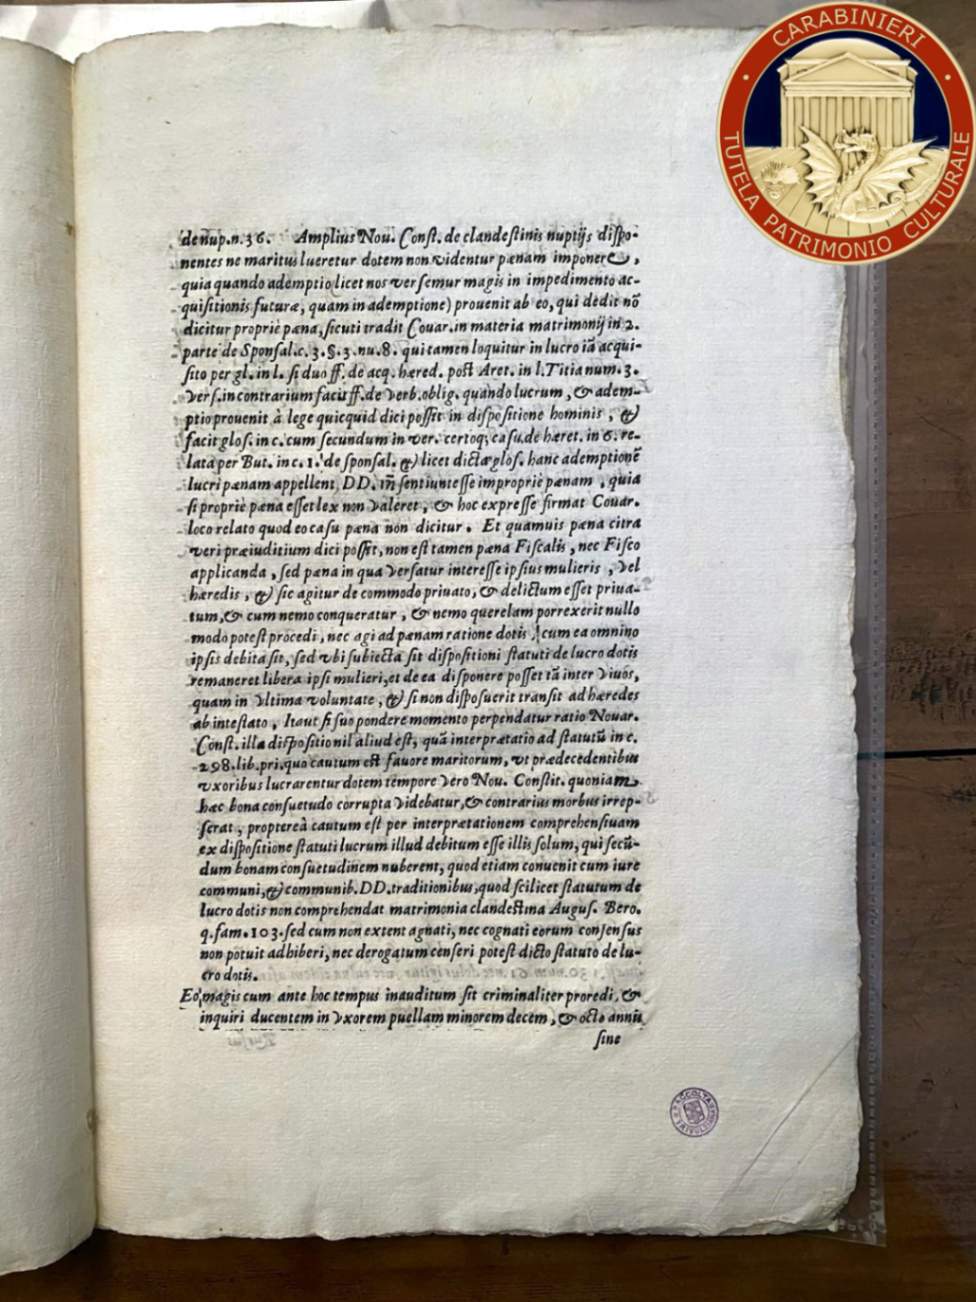 CARABINIERI
TUTELA PATRIMONIO CULTURALE
de nup.n.36. Amplius Nou. Const. de clandestinis nuptijs dispo-
nentes ne maritus lueretur dotem non videntur pænam imponere,
quia quando ademptio licet nos versemur magis in impedimento ac-
quisitionis futuræ, quam in ademptione) prouenit ab eo, qui dedit nõ
dicitur propriè pæna, sicuti tradit Couar. in materia matrimonij in 2.
parte de Sponsal.c.3.§.3.nu.8. qui tamen loquitur in lucro iã acqui-
sito per gl. in l. si duo ff. de acq. hæred. post Aret. in l. Titia num. 3.
vers. in contrarium facit ff. de verb. oblig. quando lucrum, & adem-
ptio prouenit à lege quicquid dici possit in dispositione hominis, &
facit glos. in c. cum secundum in ver. certoq; casu. de hæret. in 6. re-
lata per But. in c. 1. de sponsal. & licet dictæ glos. hanc ademptionẽ
lucri pænam appellent DD. tñ sentiunt esse impropriè pænam, quia
si propriè pæna esset lex non valeret, & hoc expresse firmat Couar.
loco relato quod eo casu pæna non dicitur. Et quamuis pæna citra
veri præiuditium dici posset, non est tamen pæna Fiscalis, nec Fisco
applicanda, sed pæna in qua versatur interesse ipsius mulieris, vel
hæredis, & sic agitur de commodo priuato, & delictum esset priua-
tum, & cum nemo conqueratur, & nemo querelam porrexerit nullo
modo potest procedi, nec agi ad pænam ratione dotis, cum ea omnino
ipsis debita sit, sed vbi subiecta sit dispositioni statuti de lucro dotis
remaneret libera ipsi mulieri, et de ea disponere posset tã inter viuos,
quam in vltima voluntate, & si non disposuerit transit ad hæredes
ab intestato, Itaut si suo pondere momento perpendatur ratio Nouar.
Const. illa dispositio nil aliud est, quã interpretatio ad statutũ in c.
298.lib.pri.quo cautum est fauore maritorum, vt prædecedentibus
vxoribus lucrarentur dotem tempore vero Nou. Constit. quoniam
hæc bona consuetudo corrupta videbatur, & contrarius morbus irrep-
serat, proptereà cautum est per interpretationem comprehensiuam
ex dispositione statuti lucrum illud debitum esse illis solum, qui secũ-
dum bonam consuetudinem nuberent, quod etiam conuenit cum iure
communi, & communib. DD. traditionibus, quod scilicet statutum de
lucro dotis non comprehendat matrimonia clandestina Augus. Bero.
q.fam.103.sed cum non extent agnati, nec cognati eorum consensus
non potuit adhiberi, nec derogatum censeri potest dicto statuto de lu-
cro dotis.
Eo magis cum ante hoc tempus inauditum sit criminaliter proredi, &
inquiri ducentem in vxorem puellam minorem decem, & octo annis
sine